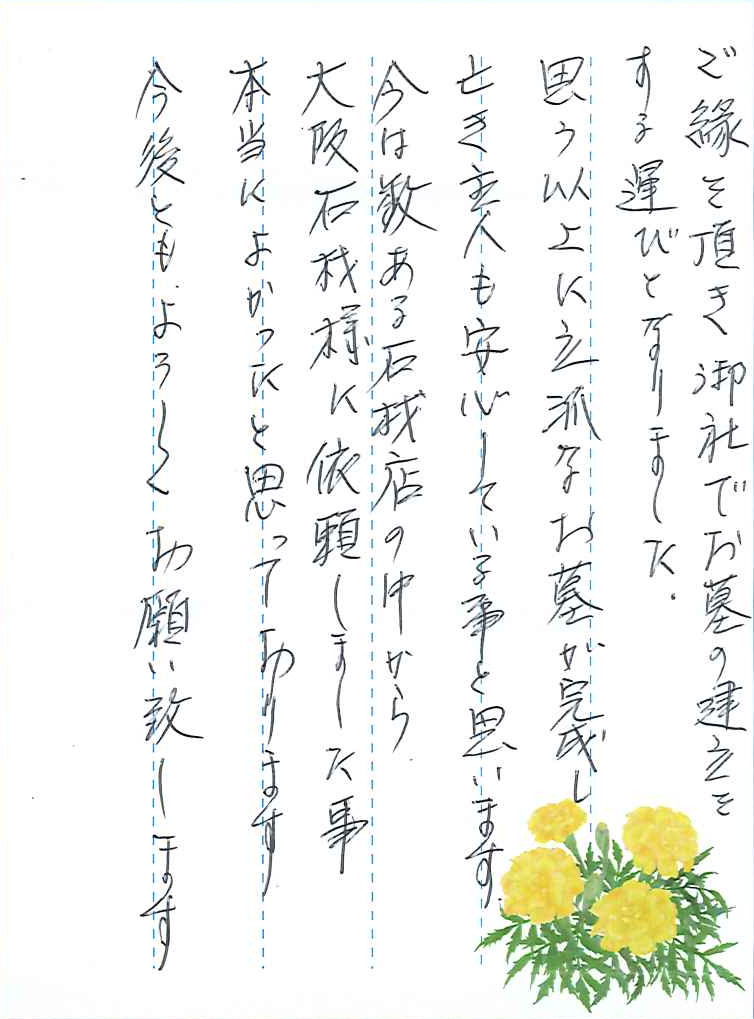 ご縁を頂き御社でお墓の建立を
する運びとなりました.
思う以上に立派なお墓が完成し
とき主人も安心している事と思います.
今は数ある石材店の中から
大阪石材様に依頼しました事
本当によかったと思っております
今後ともよろしくお願い致します